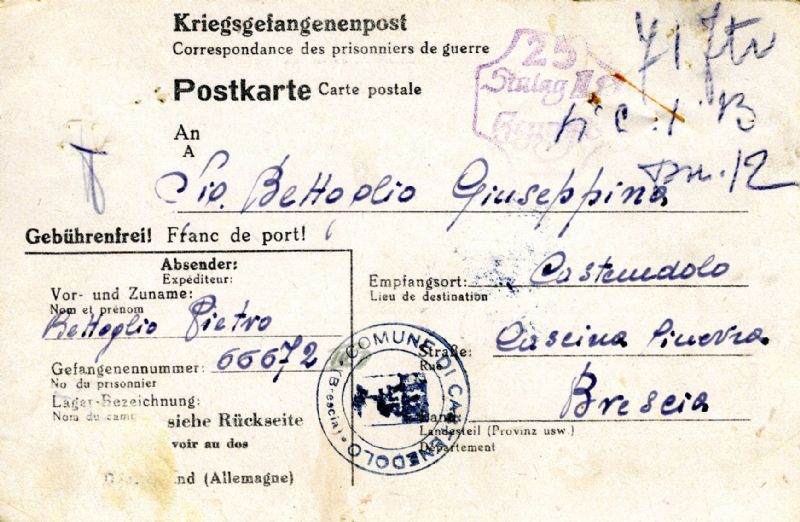 Kriegsgefangenenpost
Correspondance des prisonniers de guerre
25
Stalag
Postkarte Carte postale
B
12
An
A
Sig. Bettoglio Giuseppina
Gebührenfrei! Franc de port!
Absender:
Expéditeur:
Vor- und Zuname:
Nom et prénom
Bettoglio Pietro
Gefangenennummer: 66672
No du prisonnier
Lager-Bezeichnung:
Nom du camp
siehe Rückseite
voir au dos
(Allemagne)
Empfangsort: Castenedolo
Lieu de destination
Straße: Cascina
Rue
Brescia
Land:
Landesteil (Provinz usw.)
Département
COMUNE DI CASTENEDOLO
(Brescia)